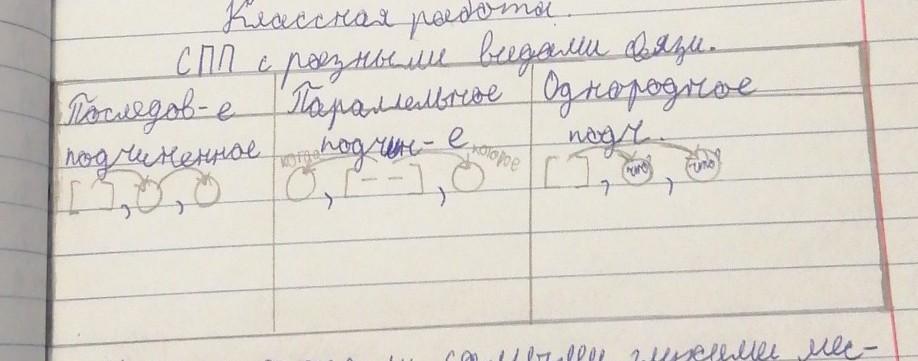 Классная работа.
СПП с разными видами связи.
Последов-е
подчиненное
[ ], ( ), ( )
Параллельное
подчин-е
когда которое
( ), [ -- ], ( )
Однородное
подч.
[ ], (что?), (что?)